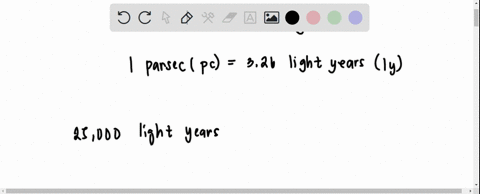 1 parsec (pc) = 3.26 light years (ly)
25,000 light years